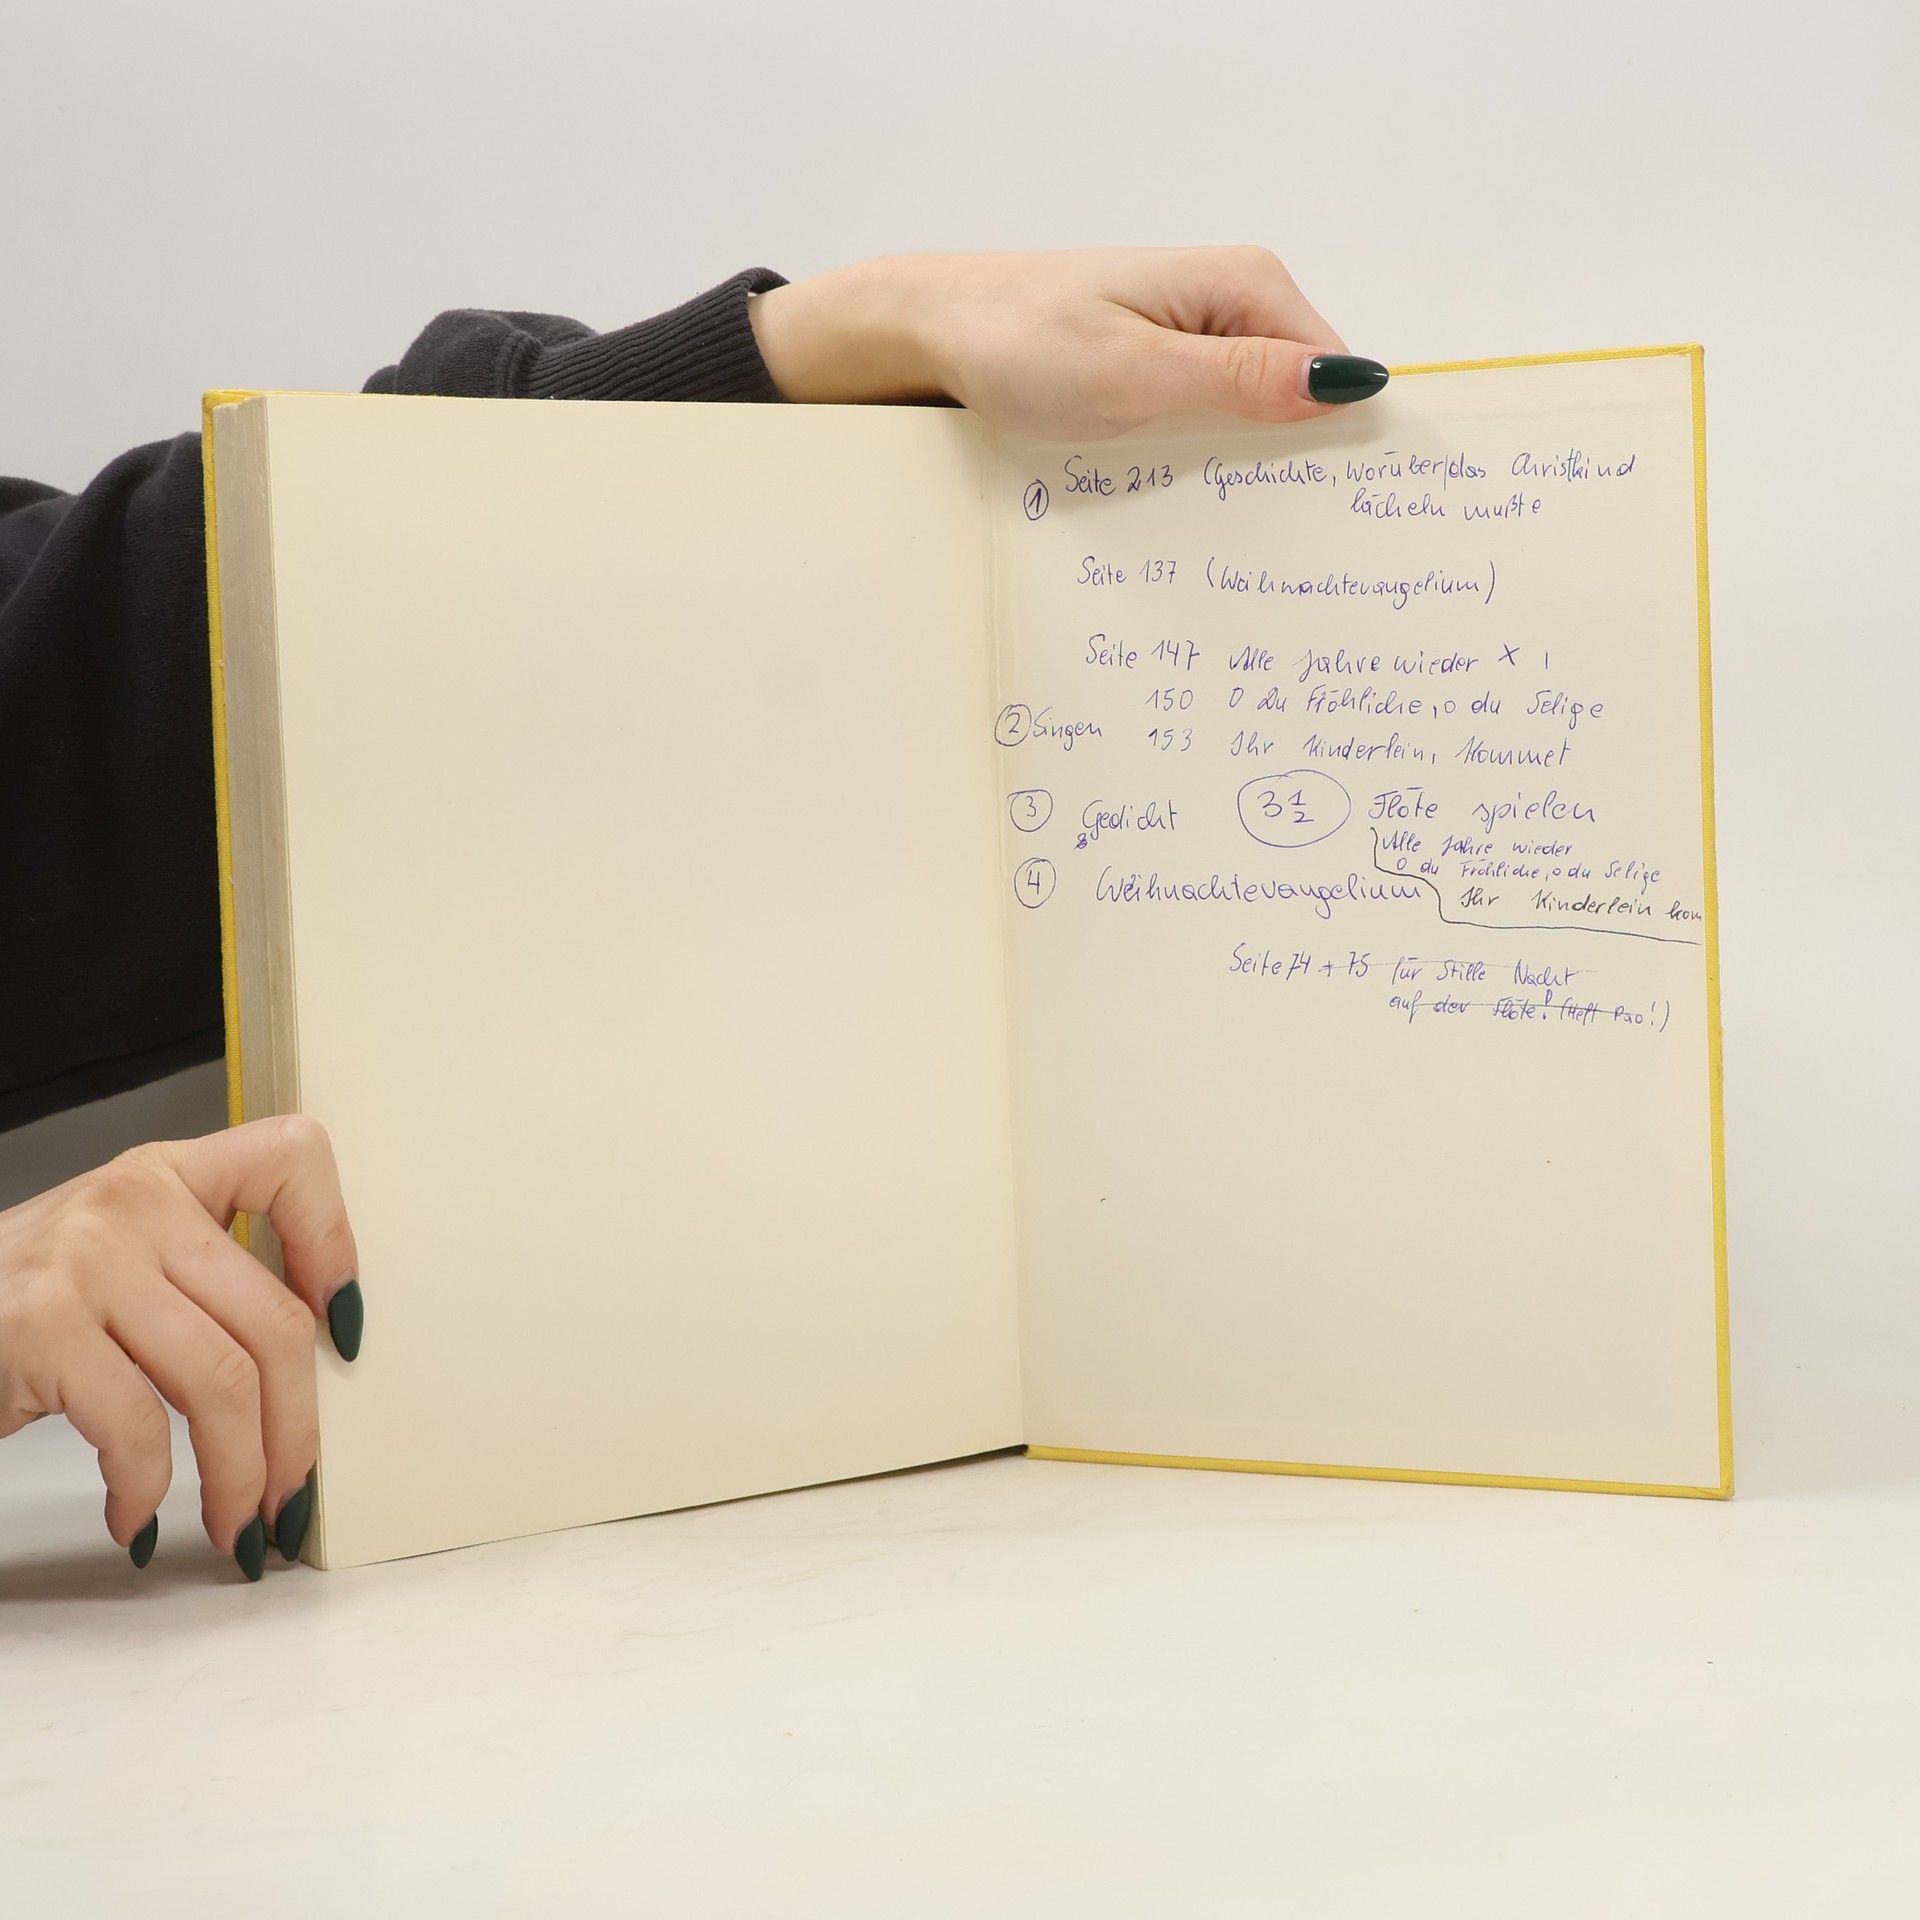 ① Seite 213 (Geschichte, worüber/das Christkind
lächeln mußte
Seite 137 (Weihnachtevangelium)
Seite 147 Alle Jahre wieder × 1
150 O Du Fröhliche, o du Selige
② Singen 153 Ihr Kinderlein, kommet
③ Gedicht 3 1/2 Flöte spielen
Alle Jahre wieder
O du Fröhliche, o du Selige
④ Weihnachtevangelium Ihr Kinderlein kom
Seite 74 + 75 für Stille Nacht
auf der Flöte! (Heft